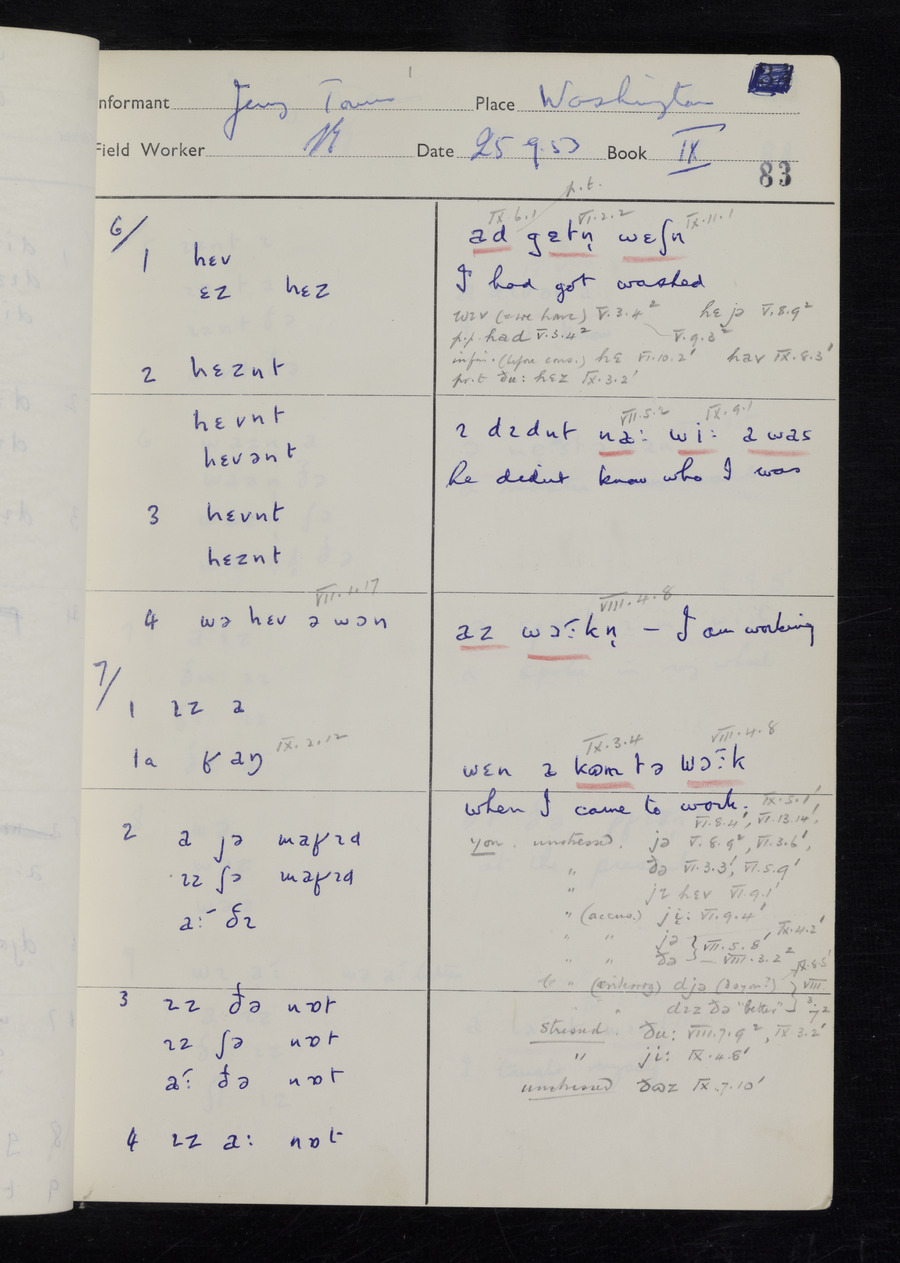 Informant Place Washington
Field Worker Date 25.9.53 Book IX
83
p.t.
6/
1 hɛv
ɛz hɛz
2 hɛznt
hɛvnt
hɛvənt
3 hɛvnt
hɛznt
VII.1.17
4 wə hɛv ə wɔn
7/
1 ɪz a
1a IX.2.12
2 a jə maʁɪd
ɪz ʃə maʁɪd
a: ðɪ
3 ɪz ðə nɒt
ɪz ʃə nɒt
a: ðə nɒt
4 ɪz a: nɒt
IX.6.1 VI.2.2 IX.11.1
ad gɛtn̩ wɛʃn
I had got washed
wɪv (= we have) V.3.4² hɛ jə V.8.9²
p.p. had V.3.4² V.9.3²
infin. (before cons.) hɛ VI.10.2' hav IX.8.3'
pr.t ðu: hɛz IX.3.2'
VII.5.2 IX.9.1
ɪ dɪdnt na: wi: a was
he didnt know who I was
VIII.4.8
az wɔ:kn̩ – I am working
IX.3.4 VIII.4.8
wɛn a kam tə wɔ:k
when I came to work. IX.5.1'
VI.8.4', VI.13.14',
you. unstressed. jə V.8.9², VI.3.6',
" ðə VI.3.3', VI.5.9'
" jɪ hɛv VI.9.1'
" (accus.) ji: VI.9.4'
" " jə } VII.5.8' IX.4.2'
" " ðə } – VIII.3.2²
djə
" dɪz ðə "better"
stressed. ðu: VIII.7.9², IX.3.2'
" ji: IX.4.8'
unstressed ðaz IX.7.10'